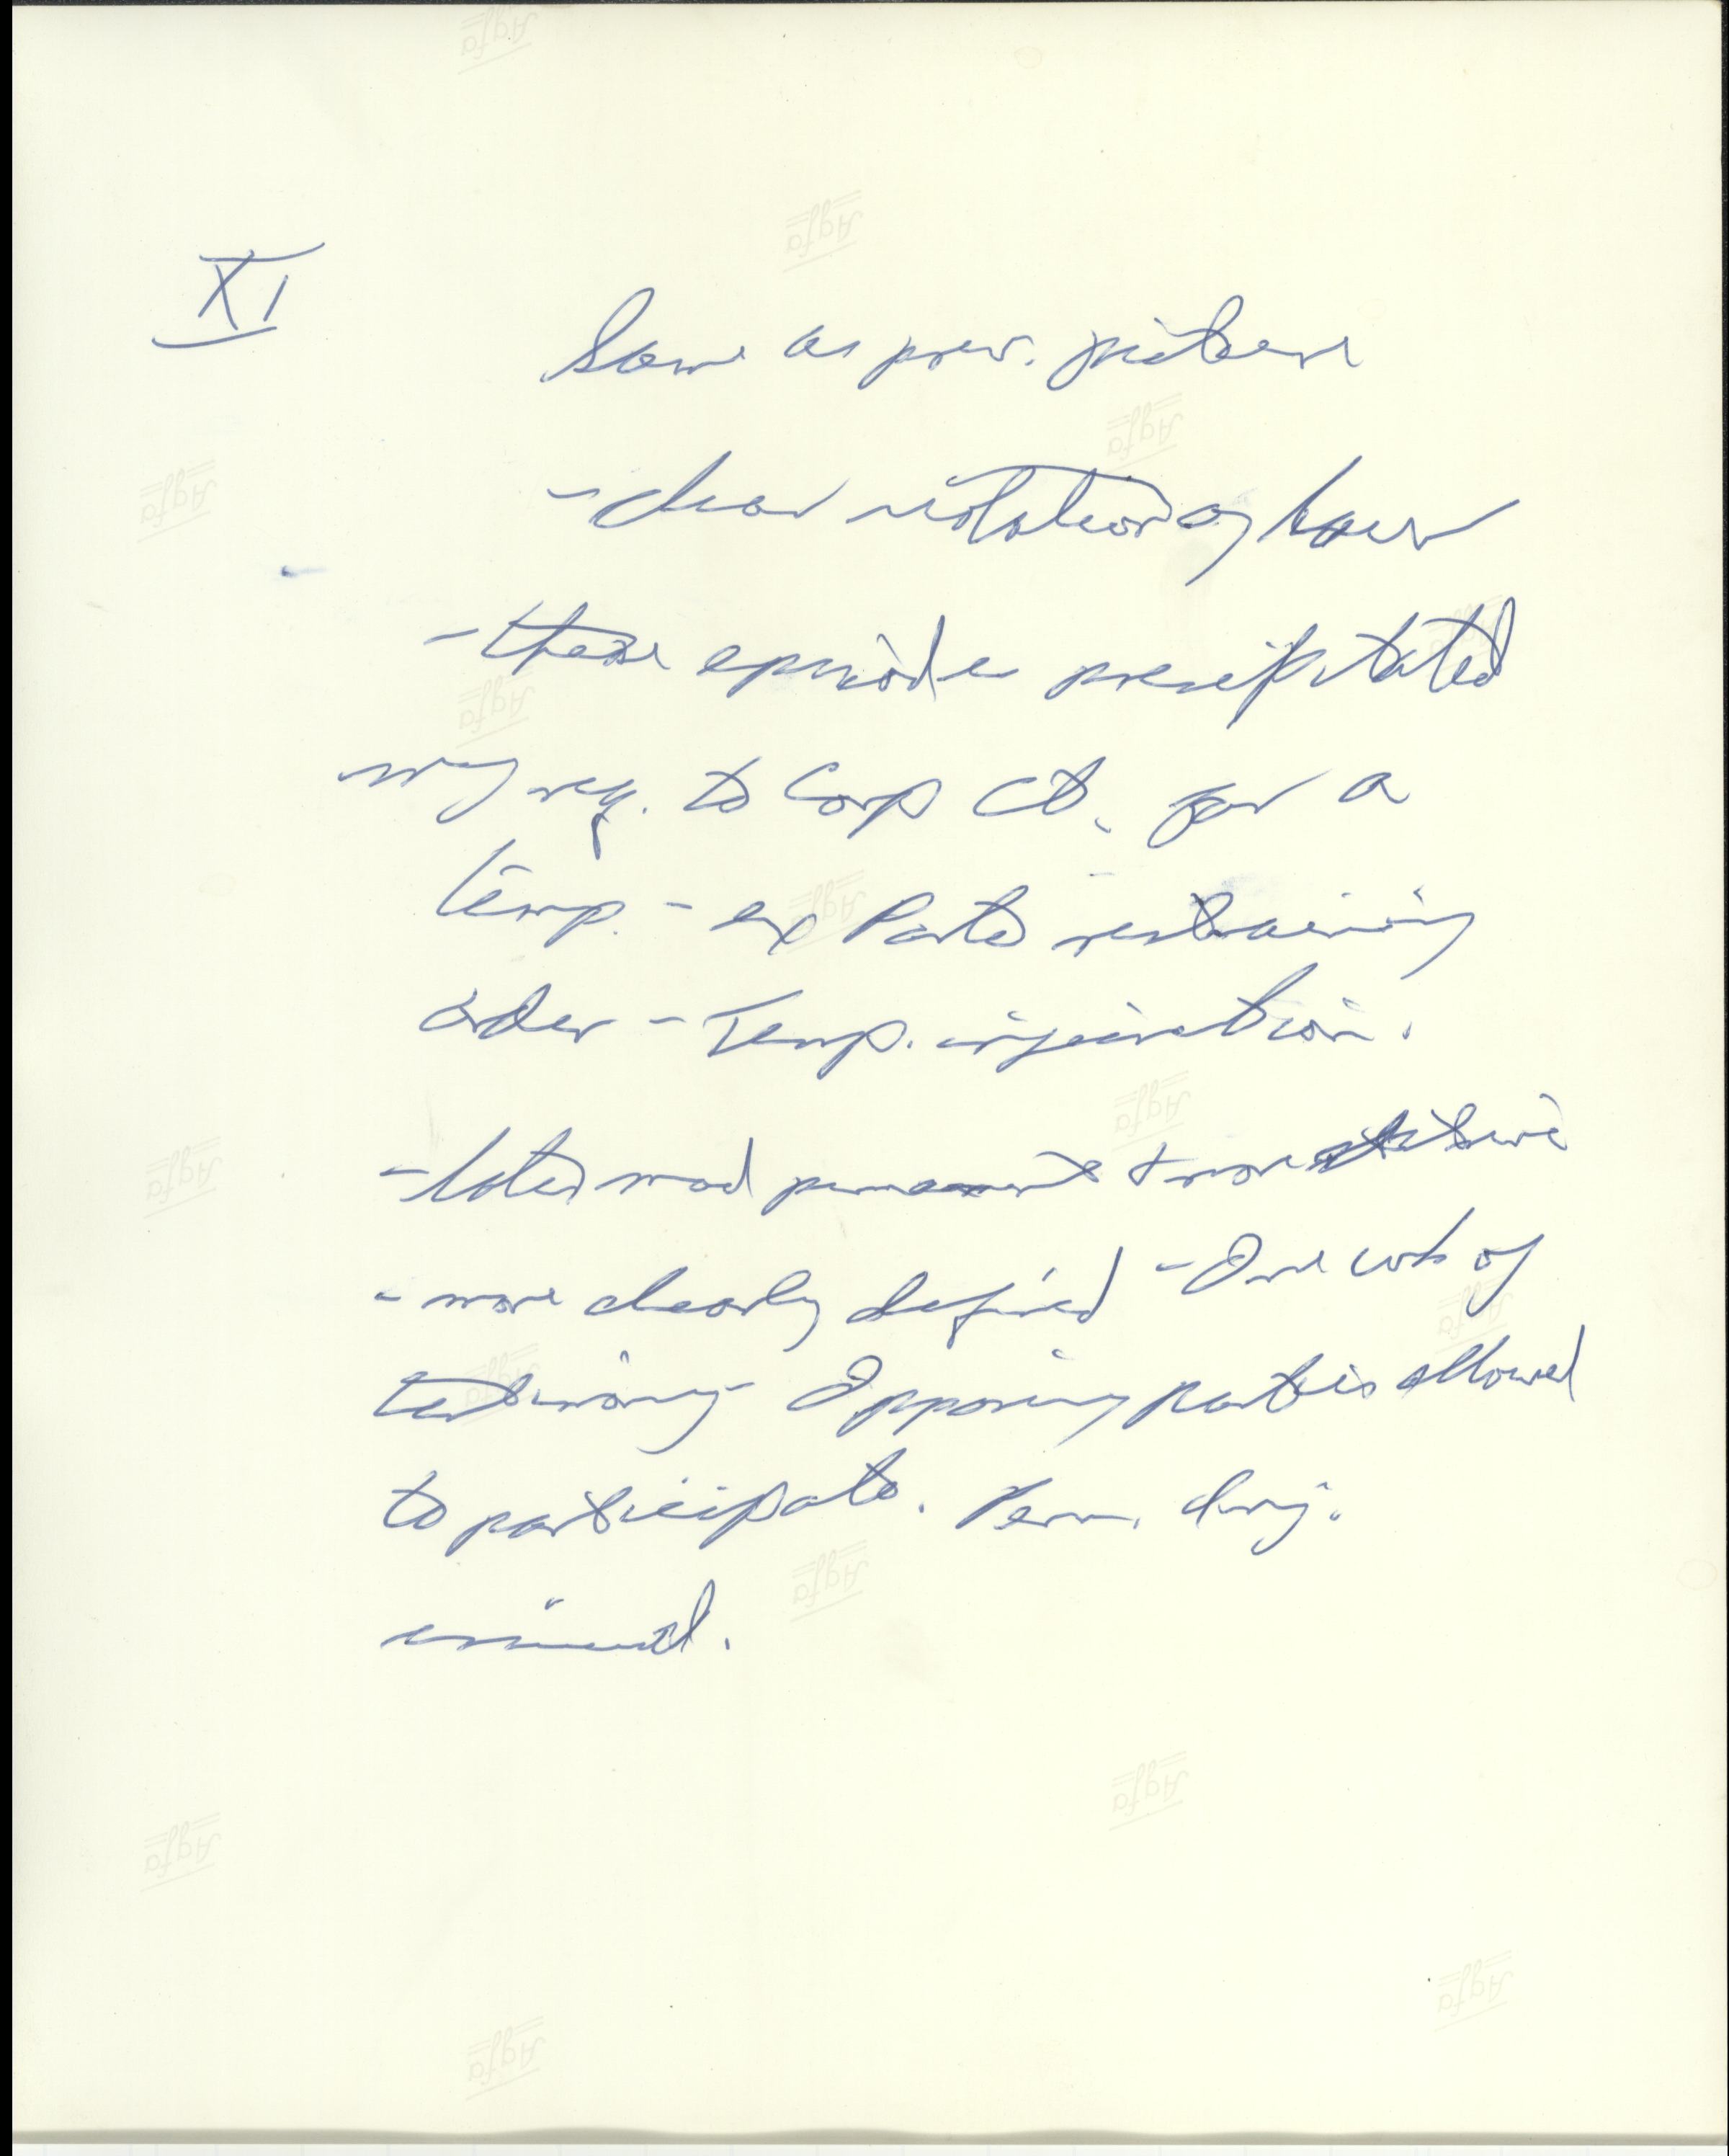 XI
Same as prev. picture
- clear violation of law
- these episodes precipitated
my req. to Corp Ct. for a
temp. - ex Parte restraining
order - Temp. injunction.
- later mad permanent & more
- more clearly defined - One wk of
testimony - Opposing parties allowed
to participate. Perm. Inj.
issued.
Agfa